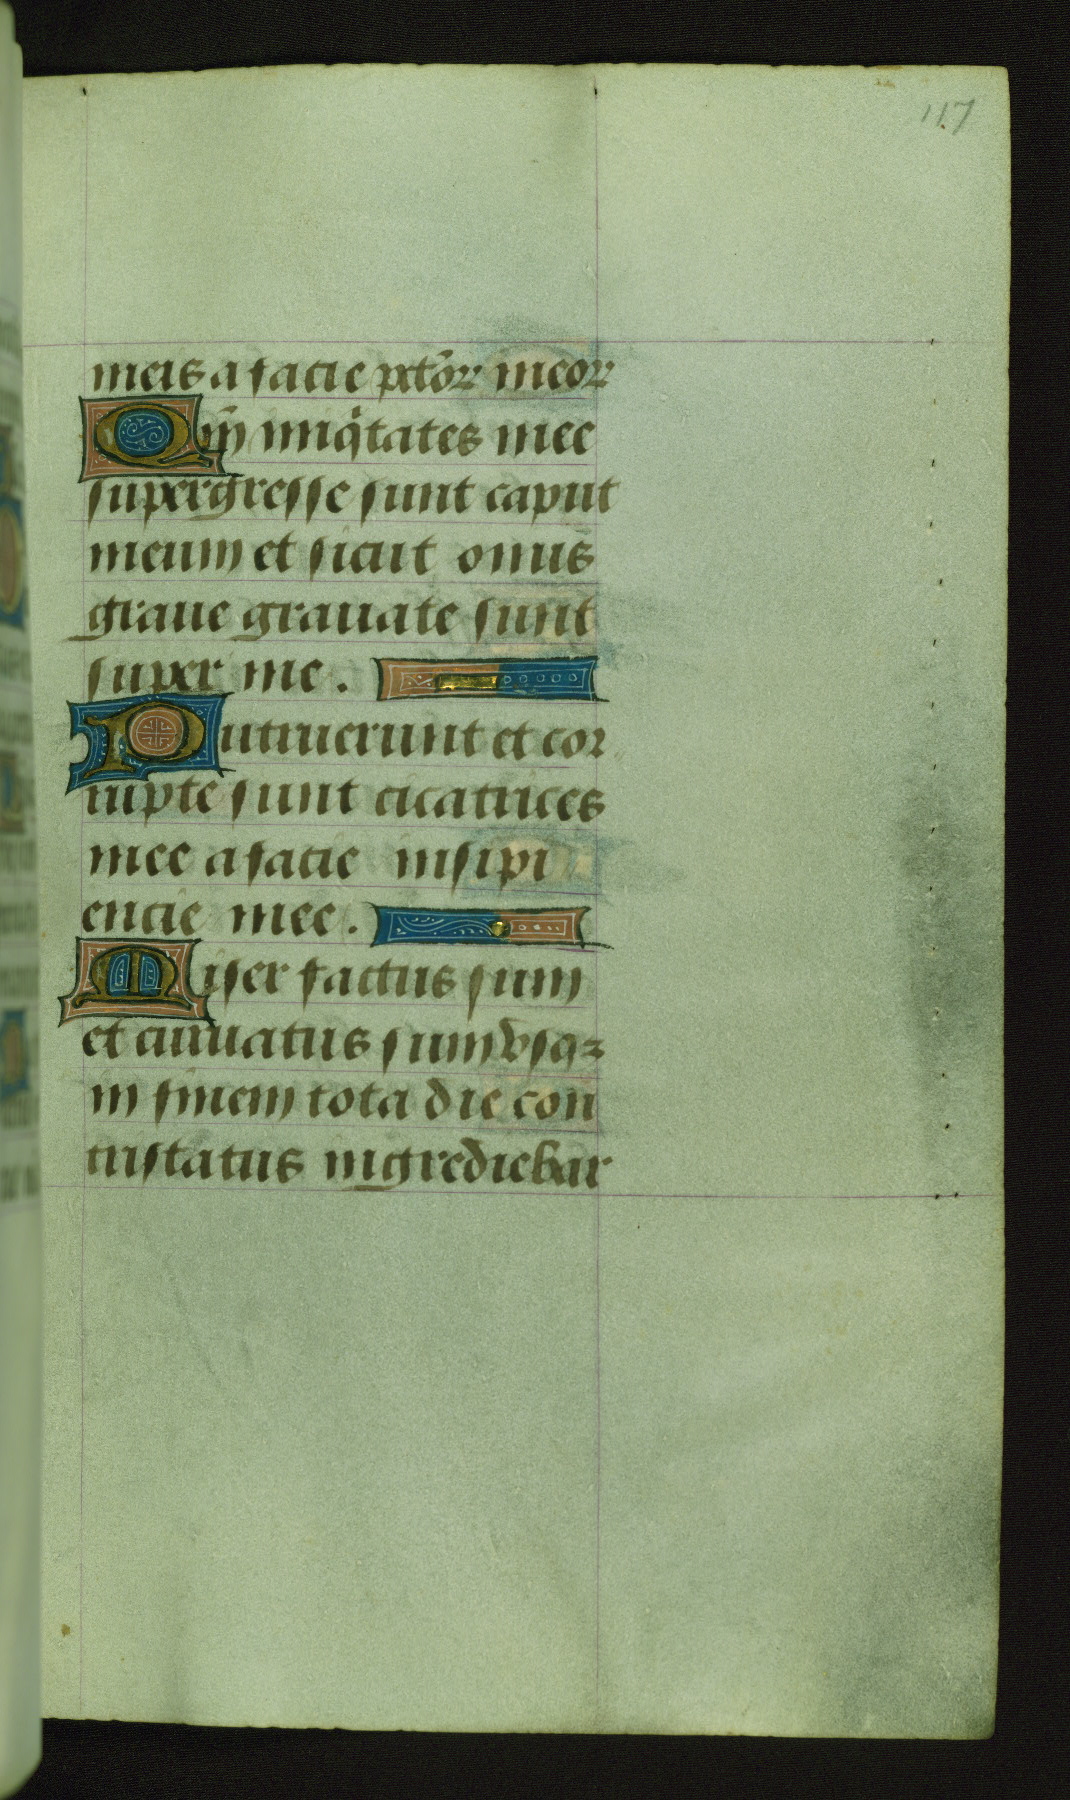 117
meis a facie pctōꝝ meoꝝ
Qm̄ iniqͥtates mee
supergresse sunt caput
meum et sicut onus
graue grauate sunt
super me.
Putruerunt et cor
rupte sunt cicatrices
mee a facie insipi
encie mee.
Miser factus sum
et curuatus sum vsqꝫ
in finem tota die con
tristatus ingrediebar